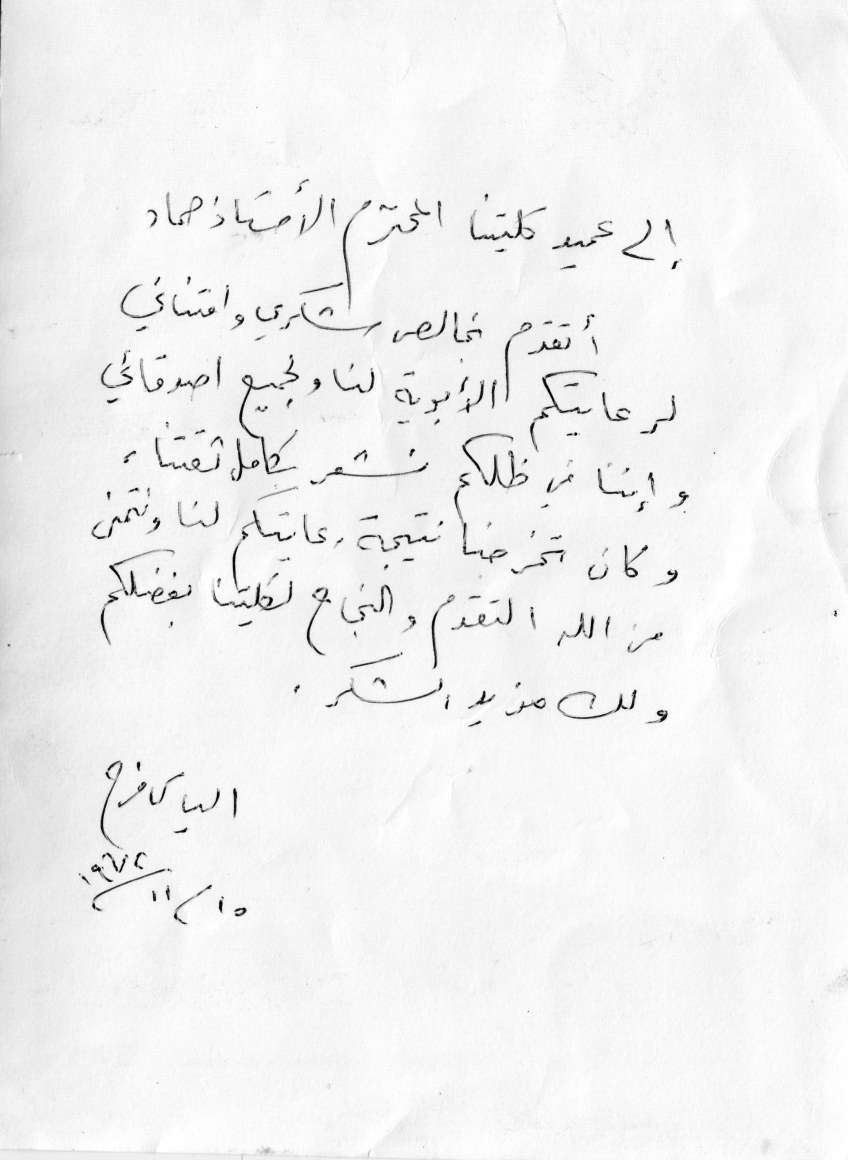 إلى عميد كليتنا المحترم الأستاذ حماد
أتقدم بخالص شكري وامتناني
لرعايتكم الأبوية لنا ولجميع اصدقائي
وإننا في ظلكم نشعر بكامل ثقتنا،
وكان تخرجنا نتيجة رعايتكم لنا ونتمنى
من الله التقدم والنجاح لكليتنا بفضلكم
ولك مزيد الشكر.
الياس فرح
١٥/١١/